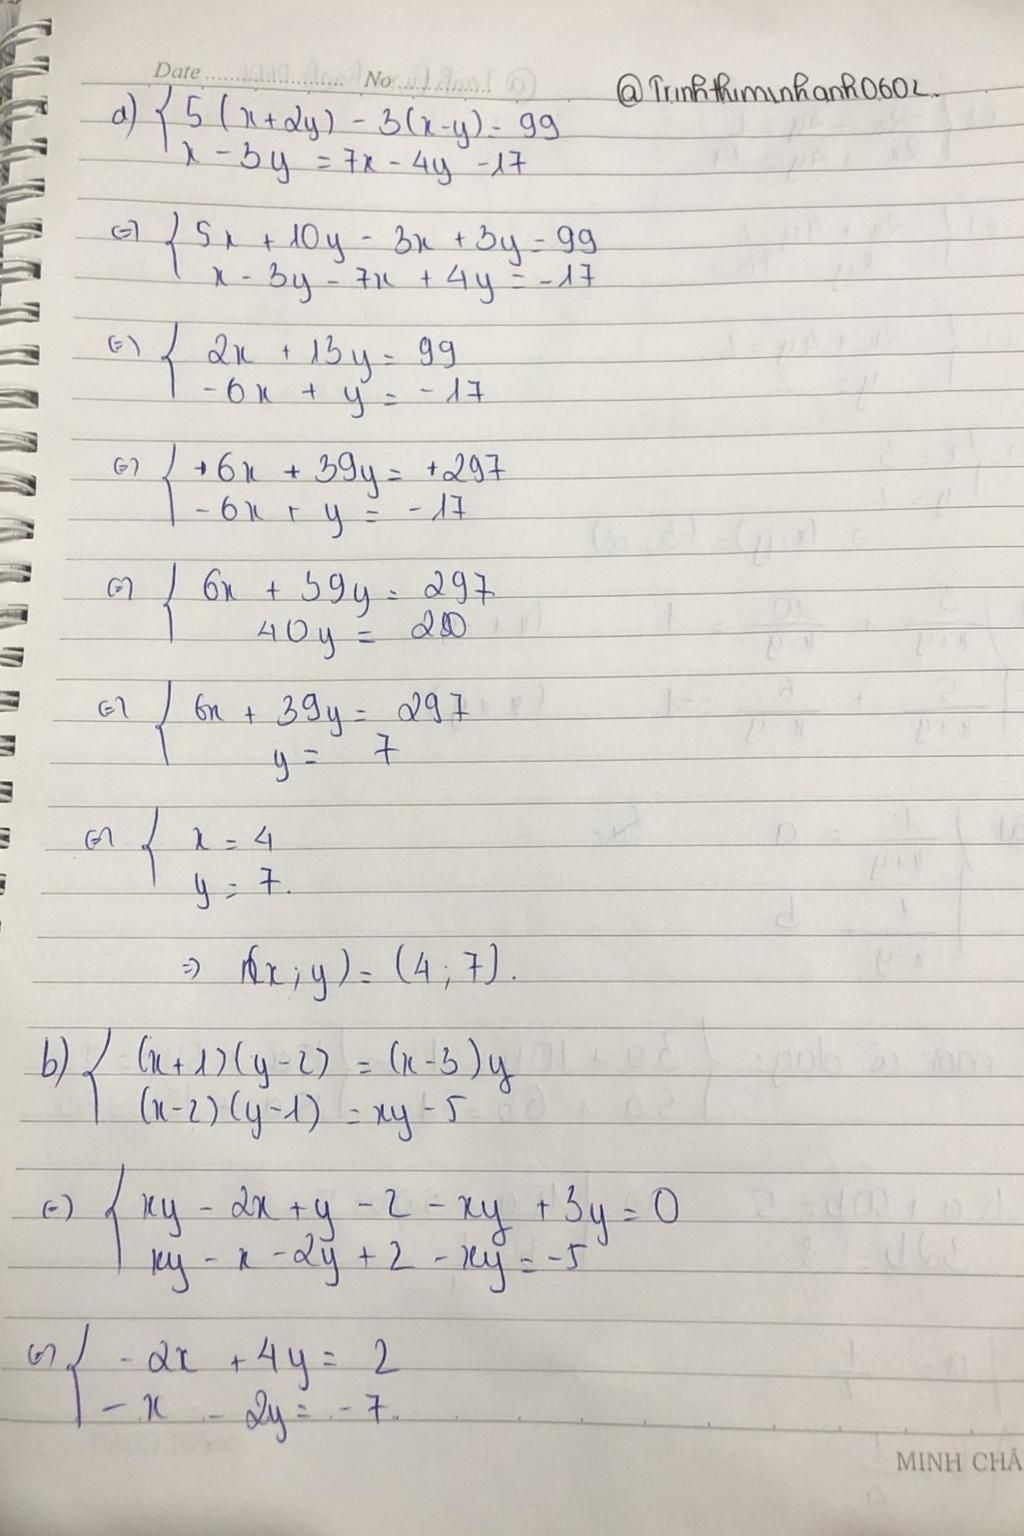 Date ........................ No ................
@Trinhthiminhanh0602.
a) { 5(x+2y) - 3(x-y) = 99
x - 3y = 7x - 4y - 17
(=) { 5x + 10y - 3x + 3y = 99
x - 3y - 7x + 4y = -17
(=) { 2x + 13y = 99
-6x + y = -17
(=) { +6x + 39y = +297
-6x + y = -17
(=) { 6x + 39y = 297
40y = 280
(=) { 6x + 39y = 297
y = 7
(=) { x = 4
y = 7.
=> (x; y) = (4; 7).
b) { (x+1)(y-2) = (x-3)y
(x-2)(y-1) = xy - 5
(=) { xy - 2x + y - 2 - xy + 3y = 0
xy - x - 2y + 2 - xy = -5
(=) { -2x + 4y = 2
-x - 2y = -7.
MINH CHÂ